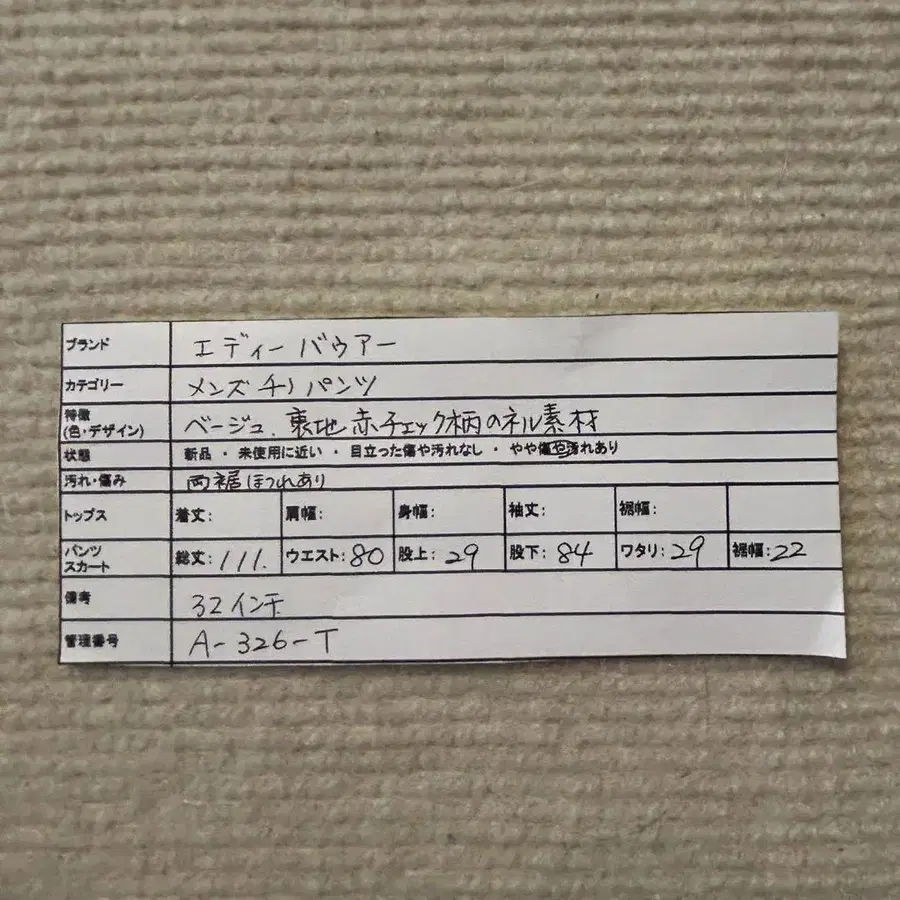 ブランド エディーバウアー
カテゴリー メンズチノパンツ
特徴
(色・デザイン) ベージュ、裏地赤チェック柄のネル素材
状態 新品 ・ 未使用に近い ・ 目立った傷や汚れなし ・ やや傷や汚れあり
汚れ・傷み 両裾ほつれあり
トップス 着丈: 肩幅: 身幅: 袖丈: 裾幅:
パンツ
スカート 総丈:111. ウエスト:80 股上:29 股下:84 ワタリ:29 裾幅:22
備考 32インチ
管理番号 A-326-T